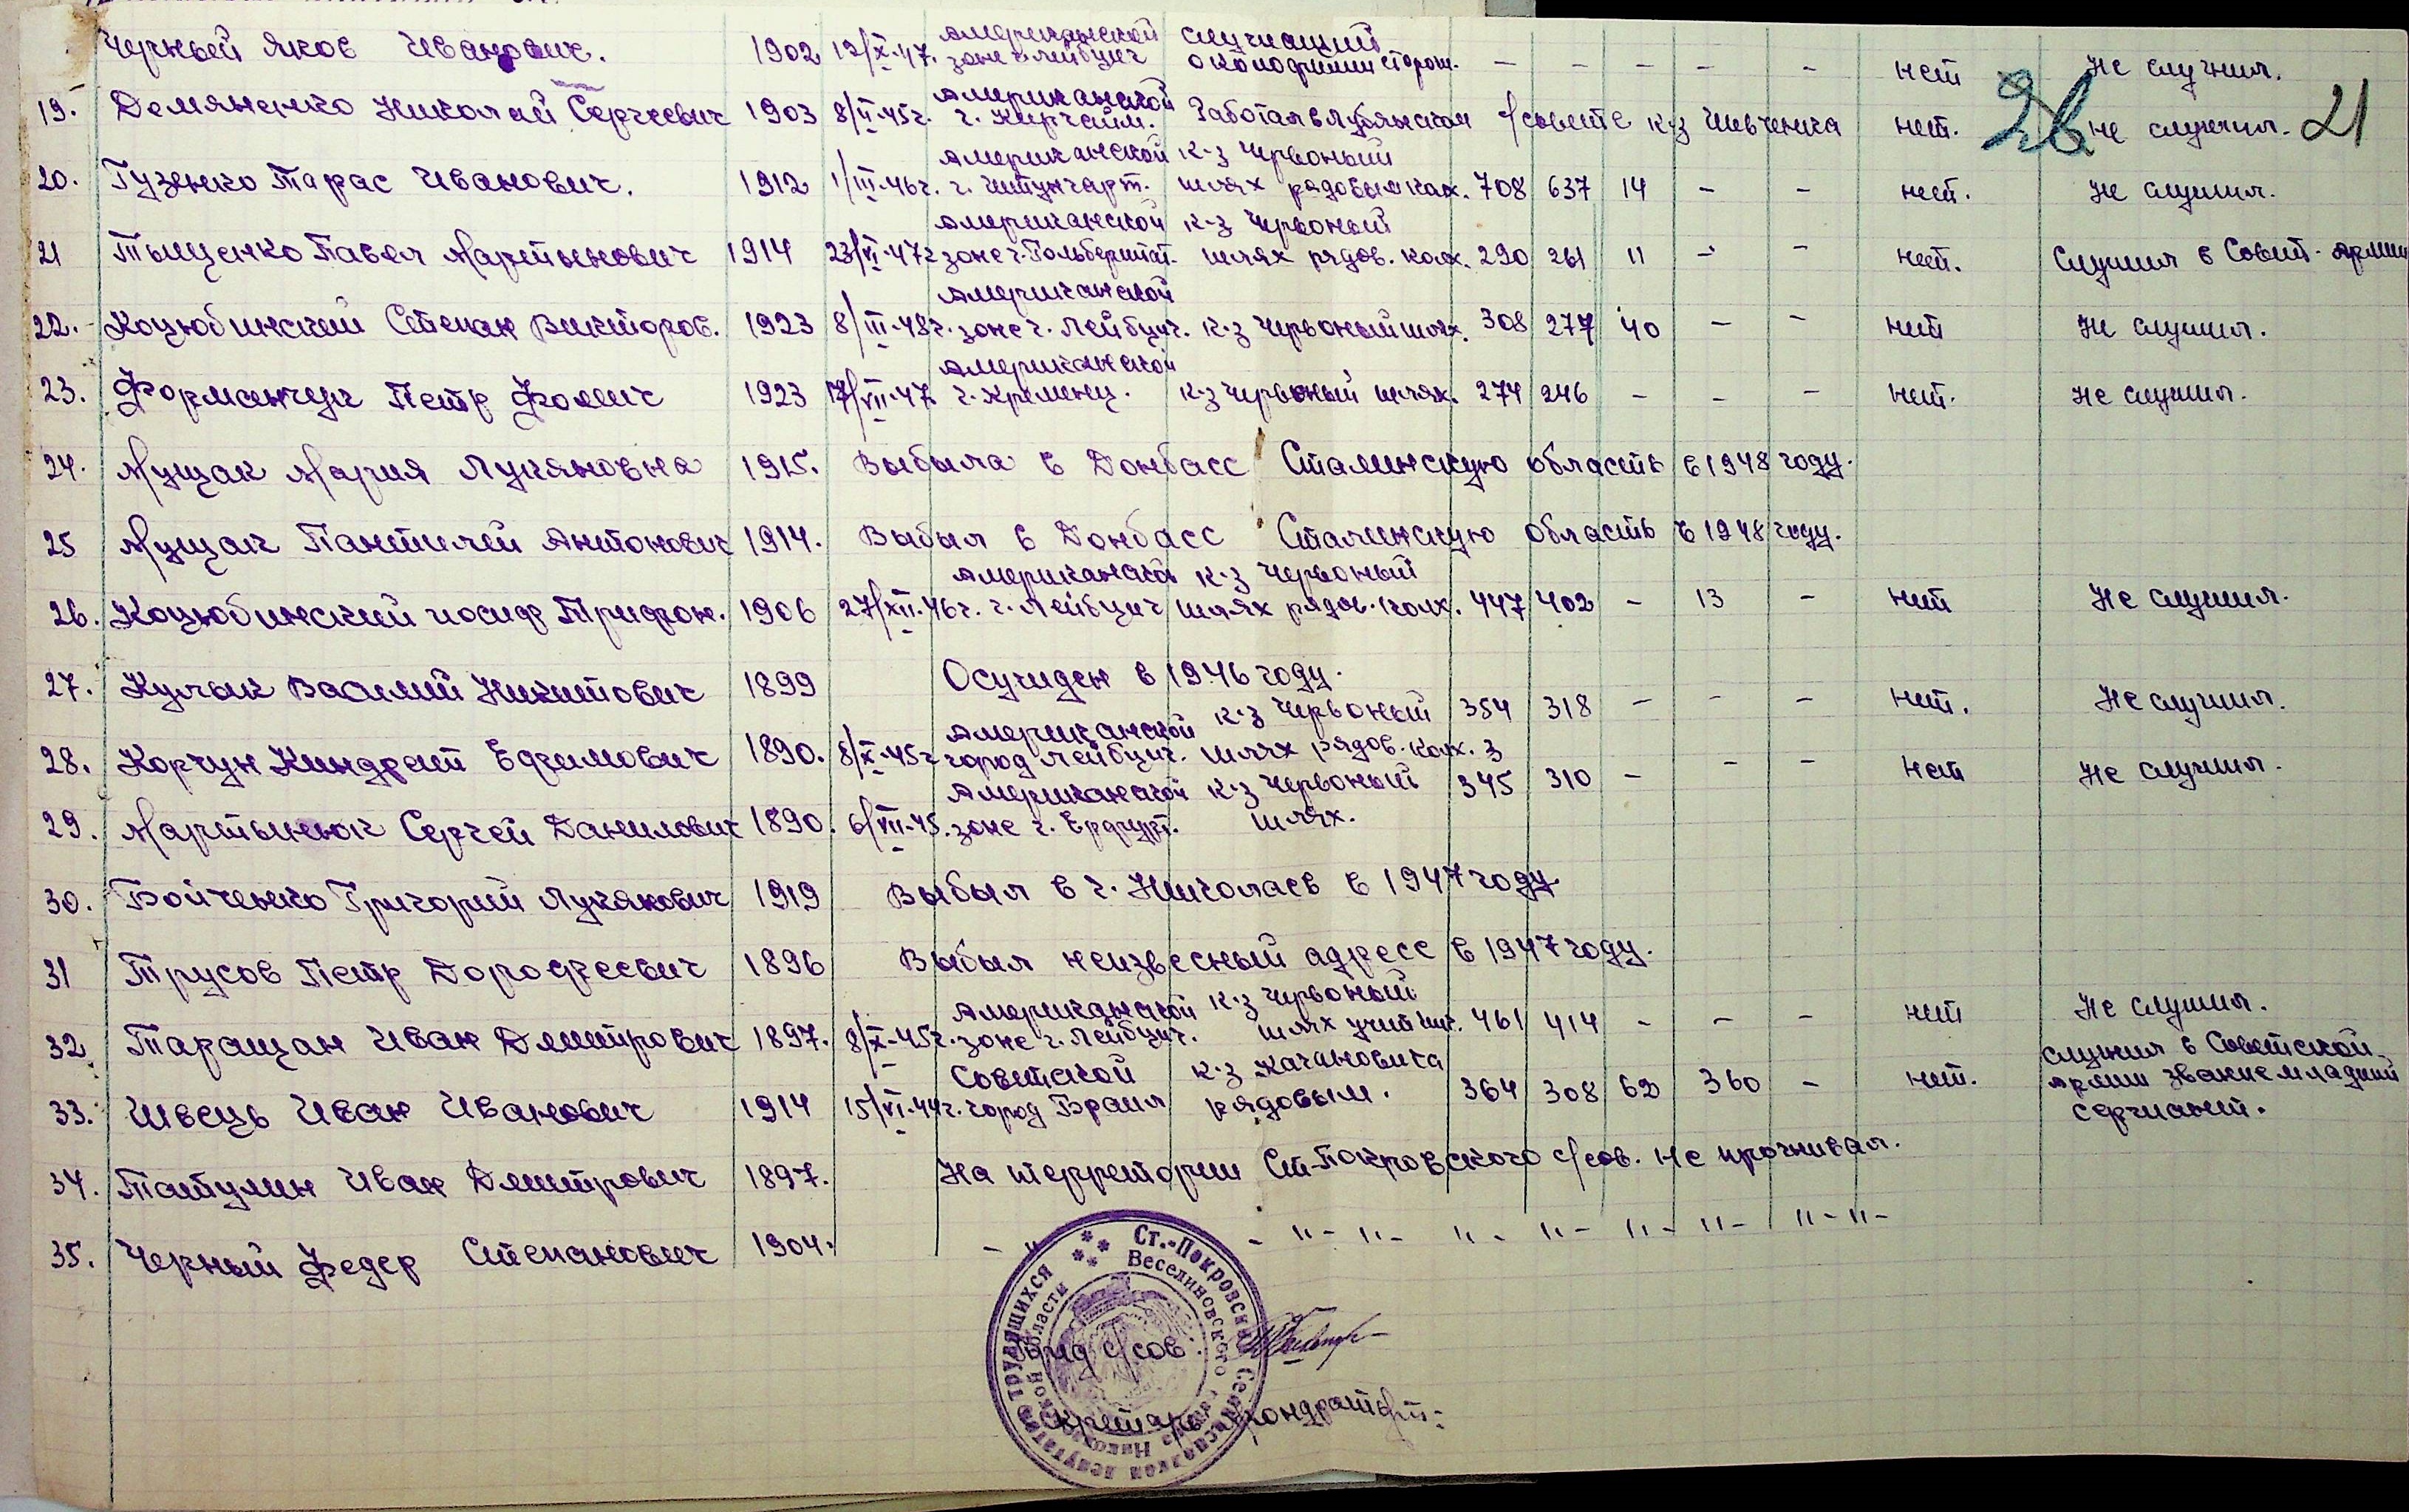 Черный Яков Иванович. 1902 12/X-47. Американской зоне г. Лейбциг служащий сторож. - - - - - нет Не служил.
19. Демяненко Николай Сергеевич 1903 8/II-45г. Американской г. Работал в с/совете к-з Шевченка нет. не служил. 21
20. Гузенко Тарас Иванович. 1912 1/III-46г. Американской г. Штунгарт. к-з Червоный шлях рядовым колх. 708 637 14 - - нет. Не служил.
21 Тыщенко Павел Мартынович 1914 23/VI-47г Американской зоне г. Гольберштат. к-з Червоный шлях рядов. колх. 290 261 11 - - нет. Служил в Совет. армии
22. Коцюбинский Степан Викторов. 1923 8/III-48г. Американской зоне г. Лейбциг. к-з Червоный шлях. 308 277 40 - - нет Не служил.
23. Форманчук Петр Фомич 1923 17/VII-47. Американской г. Кременц. к-з Червоный шлях. 274 246 - - - нет. Не служил.
24. Мущак Мария Лукяновна 1915. Выбыла в Донбасс Сталинскую область в 1948 году.
25 Мущак Пантилей Антонович 1914. Выбыл в Донбасс Сталинскую область в 1948 году.
26. Коцюбинский иосиф Трифон. 1906 27/XII-46г. Американской г. Лейбциг к-з Червоный шлях рядов. колх. 447 402 - 13 - нет Не служил.
27. Кулык Василий Никитович 1899 Осужден в 1946 году.
28. Корчун Киндрат Ефимович 1890. 8/X-45г Американской город Лейбциг. к-з Червоный шлях рядов. колх. 3 354 318 - - - нет. Не служил.
29. Мартынюк Сергей Данилович 1890. 6/VII-45. Американской зоне г. Ерфурт. к-з Червоный шлях. 345 310 - - - нет Не служил.
30. Бойченко Григорий Лукянович 1919 Выбыл в г. Николаев в 1947 году.
31 Трусов Петр Дорофеевич 1896 Выбыл неизвесный адресс в 1947 году.
32 Таращан Иван Дмитрович 1897. 8/X-45г. Американской зоне г. Лейбциг. к-з Червоный шлях 461 414 - - - нет Не служил.
33. Швець Иван Иванович 1914 15/VI-44г. Советской город Браил к-з Кагановича рядовым. 364 308 62 360 - нет. служил в Советской армии звание младший сержант.
34. Татулин Иван Дмитрович 1897. На территории Ст-Покровского с/сов. не проживал.
35. Черный Федер Степанович 1904. - " - " - " - " - " - " - " - " - " -
Ст.-Покровский Сельсовет депутатов трудящихся
Веселиновского Николаевской области
с/сов.
Секретарь